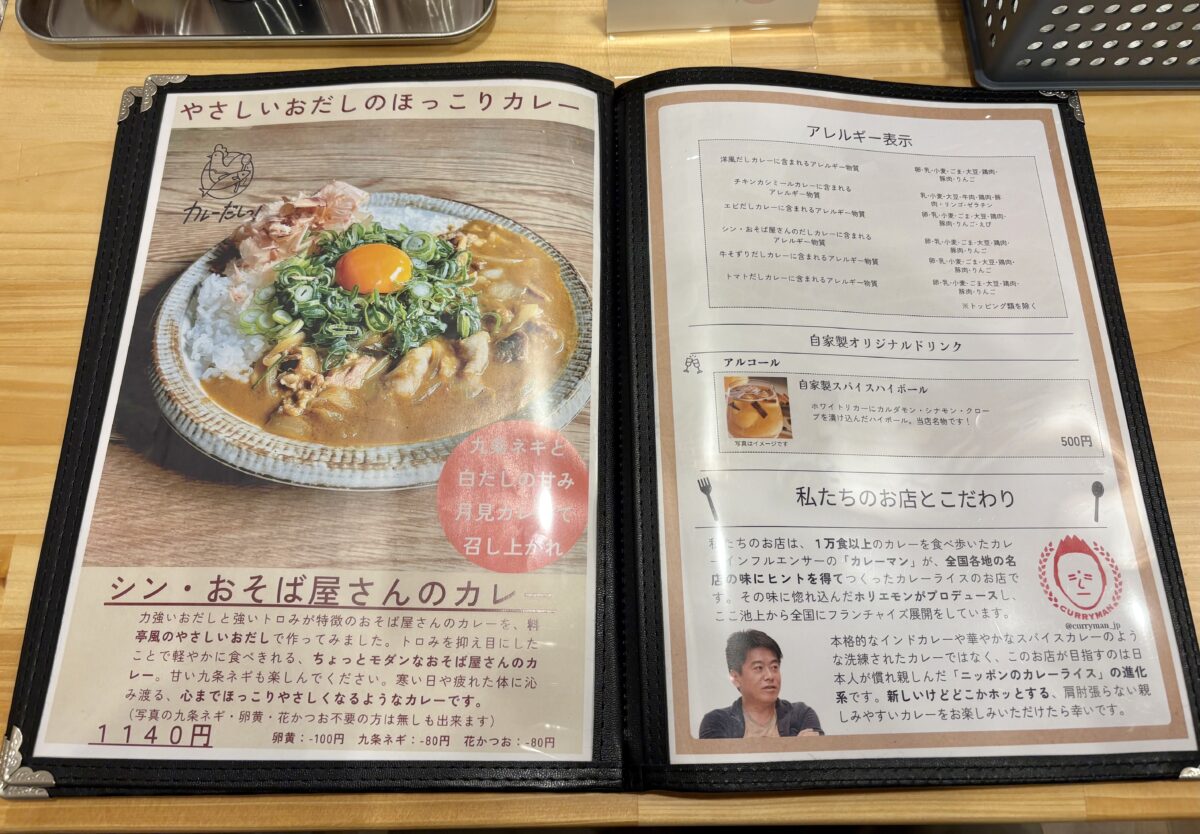 やさしいおだしのほっこりカレー
カレーだしっ!
九条ネギと
白だしの甘み
月見カレーで
召し上がれ
シン・おそば屋さんのカレー
力強いおだしと強いトロみが特徴のおそば屋さんのカレーを、料
亭風のやさしいおだしで作ってみました。トロみを抑え目にした
ことで軽やかに食べきれる、ちょっとモダンなおそば屋さんのカ
レー。甘い九条ネギも楽しんでください。寒い日や疲れた体に沁
み渡る、心までほっこりやさしくなるようなカレーです。
(写真の九条ネギ・卵黄・花かつお不要の方は無しも出来ます)
1140円
卵黄:-100円 九条ネギ:-80円 花かつお:-80円
アレルギー表示
洋風だしカレーに含まれるアレルギー物質
卵・乳・小麦・ごま・大豆・鶏肉・
豚肉・りんご
チキンカシミールカレーに含まれる
アレルギー物質
乳・小麦・大豆・牛肉・鶏肉・豚
肉・リンゴ・ゼラチン
エビだしカレーに含まれるアレルギー物質
卵・乳・小麦・ごま・大豆・鶏肉・
豚肉・りんご・えび
シン・おそば屋さんのだしカレーに含まれる
アレルギー物質
卵・乳・小麦・ごま・大豆・鶏肉・
豚肉・りんご
牛そずりだしカレーに含まれるアレルギー物質
卵・乳・小麦・ごま・大豆・鶏肉・
豚肉・りんご
トマトだしカレーに含まれるアレルギー物質
卵・乳・小麦・ごま・大豆・鶏肉・
豚肉・りんご
※トッピング類を除く
自家製オリジナルドリンク
アルコール
自家製スパイスハイボール
ホワイトリカーにカルダモン・シナモン・クロー
ブを漬け込んだハイボール。当店名物です!
写真はイメージです
500円
私たちのお店とこだわり
私たちのお店は、1万食以上のカレーを食べ歩いたカレ
ーインフルエンサーの「カレーマン」が、全国各地の名
店の味にヒントを得てつくったカレーライスのお店で
す。その味に惚れ込んだホリエモンがプロデュースし、
ここ池上から全国にフランチャイズ展開をしています。
CURRYMAN
@curryman_jp
本格的なインドカレーや華やかなスパイスカレーのよう
な洗練されたカレーではなく、このお店が目指すのは日
本人が慣れ親しんだ「ニッポンのカレーライス」の進化
系です。新しいけどどこかホッとする、肩肘張らない親
しみやすいカレーをお楽しみいただけたら幸いです。